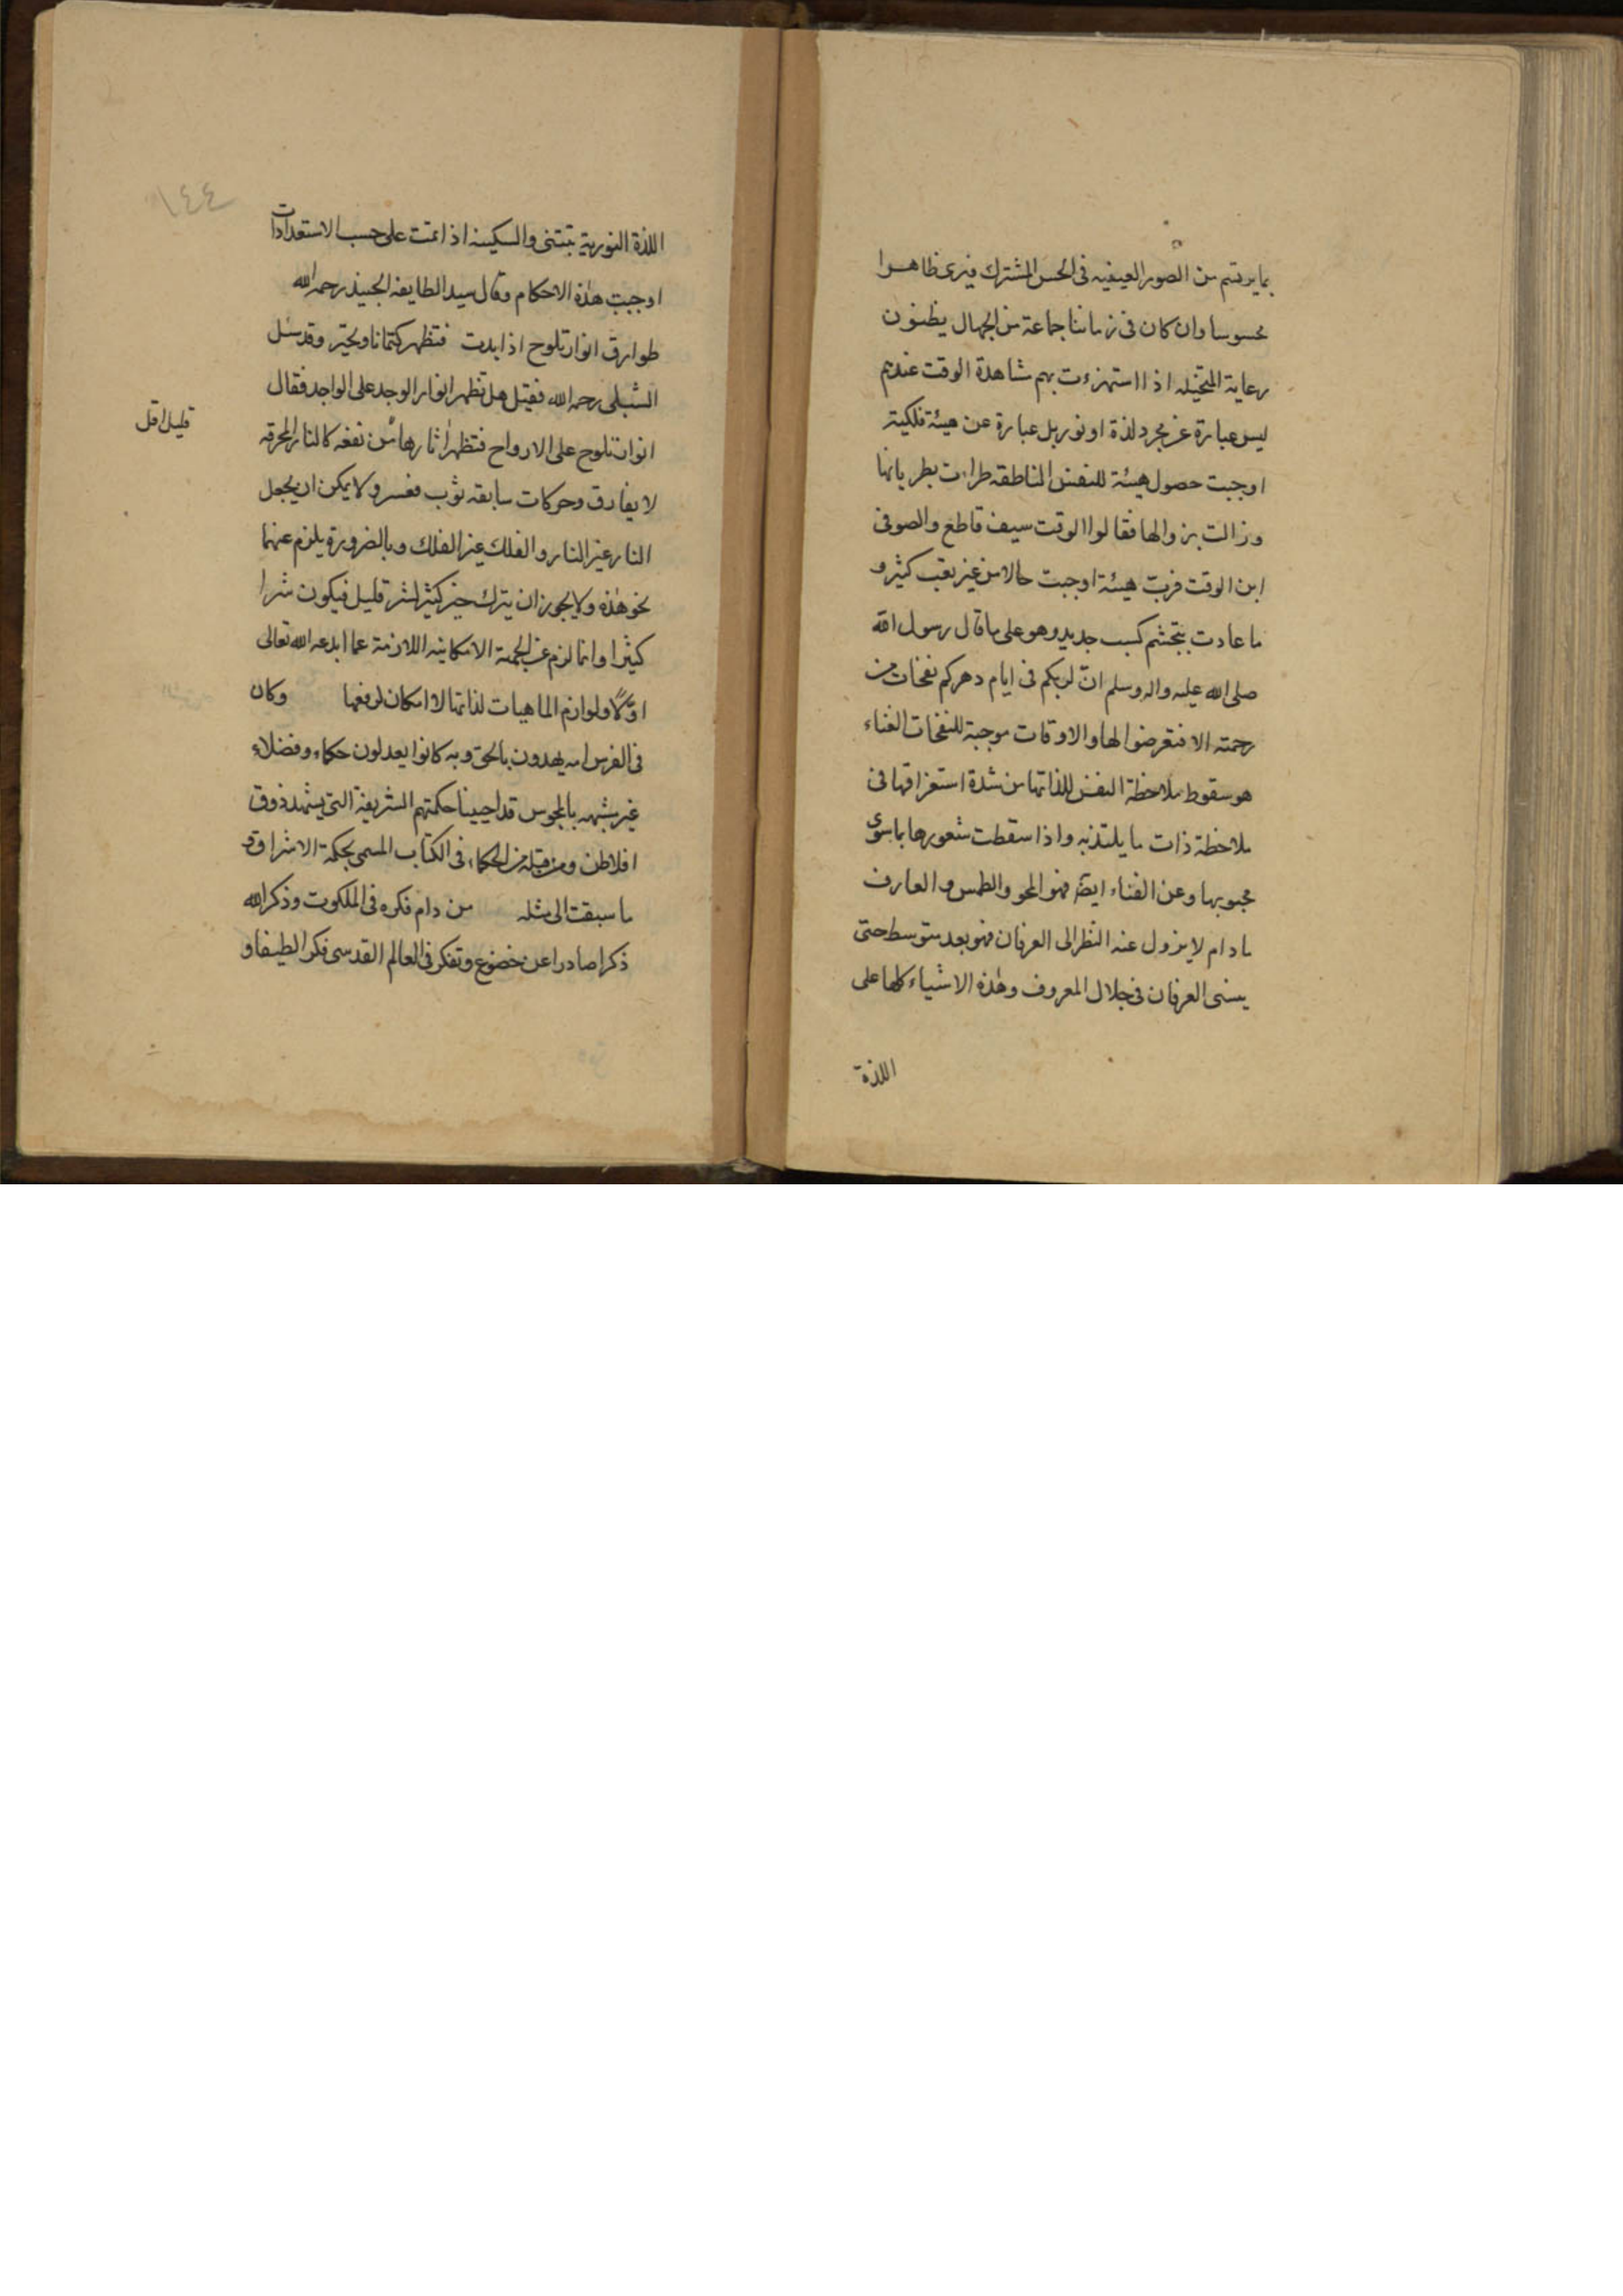 بما يرتسم من الصور الغيبيه فى الحس المشترك فيرى ظاهرا
محسوسا وان كان فى زماننا جماعة من الجهال يظنون
رعاية المتخيله اذا استهزءت بهم مشاهدة الوقت عندهم
ليس عبارة عن مجرد لذة او نور بل عبارة عن هيئة فلكية
اوجبت حصول هيئة للنفس الناطقه طرات بطريانها
وزالت بزوالها فقالوا الوقت سيف قاطع والصوفى
ابن الوقت فربّ هيئة اوجبت حالا من غير تعب كثير و
ما عادت بتجشم كسب جديد وهو على ما قال رسول الله
صلى الله عليه واله وسلم انّ لربكم فى ايام دهركم نفحات من
رحمته الا فتعرضوا لها والاوقات موجبة للنفحات الفناء
هو سقوط ملاحظة النفس للذاتها من شدة استغراقها فى
ملاحظة ذات ما يلتذ به واذا سقطت شعورها بما سوى
محبوبها وعن الفناء ايضا فهو المحو والطمس والعارف
ما دام لا يزول عنه النظر الى العرفان فهو بعد متوسط حتى
ينسى العرفان فى جلال المعروف وهذه الاشياء كلها على
اللذة
١٤٤
اللذة النورية تبتنى والسكينه اذا تمت على حسب الاستعدادات
اوجبت هذه الاحكام وقال سيد الطايفه الجنيد رحمه الله
طوارق انوار تلوح اذا بدت فتظهر كتمانا وتخبر وقد سئل
الشبلى رحمه الله فقيل هل تظهر انوار الوجد على الواجد فقال
انوار تلوح على الارواح فتظهر اثارها من نفعه كالنار المحرقه
قليل اقل
لا يفارق وحركات سابقه ثوب مفسر ولا يمكن ان يجعل
النار غير النار والفلك غير الفلك وبالضرورة يلزم عنهما
نحو هذه ولا يجوز ان يترك خير كثير لشر قليل فيكون شرا
كثيرا وانما لزم عن الجهة الامكانيه اللازمة عما ابدعه الله تعالى
اوّلًا ولوازم الماهيات لذاتها لا امكان لرفعها وكان
فى الفرس امه يهدون بالحق وبه كانوا يعدلون حكماء وفضلاء
غير مشبهه بالمجوس قد احيينا حكمتهم الشريفة التى يشهد ذوق
افلاطن ومن قبله من الحكماء فى الكتاب المسمى بحكمة الاشراق و
ما سبقت الى مثله من دام فكره فى الملكوت وذكر الله
ذكرا صادرا عن خضوع وتفكر فى العالم القدسى فكرا لطيفا و